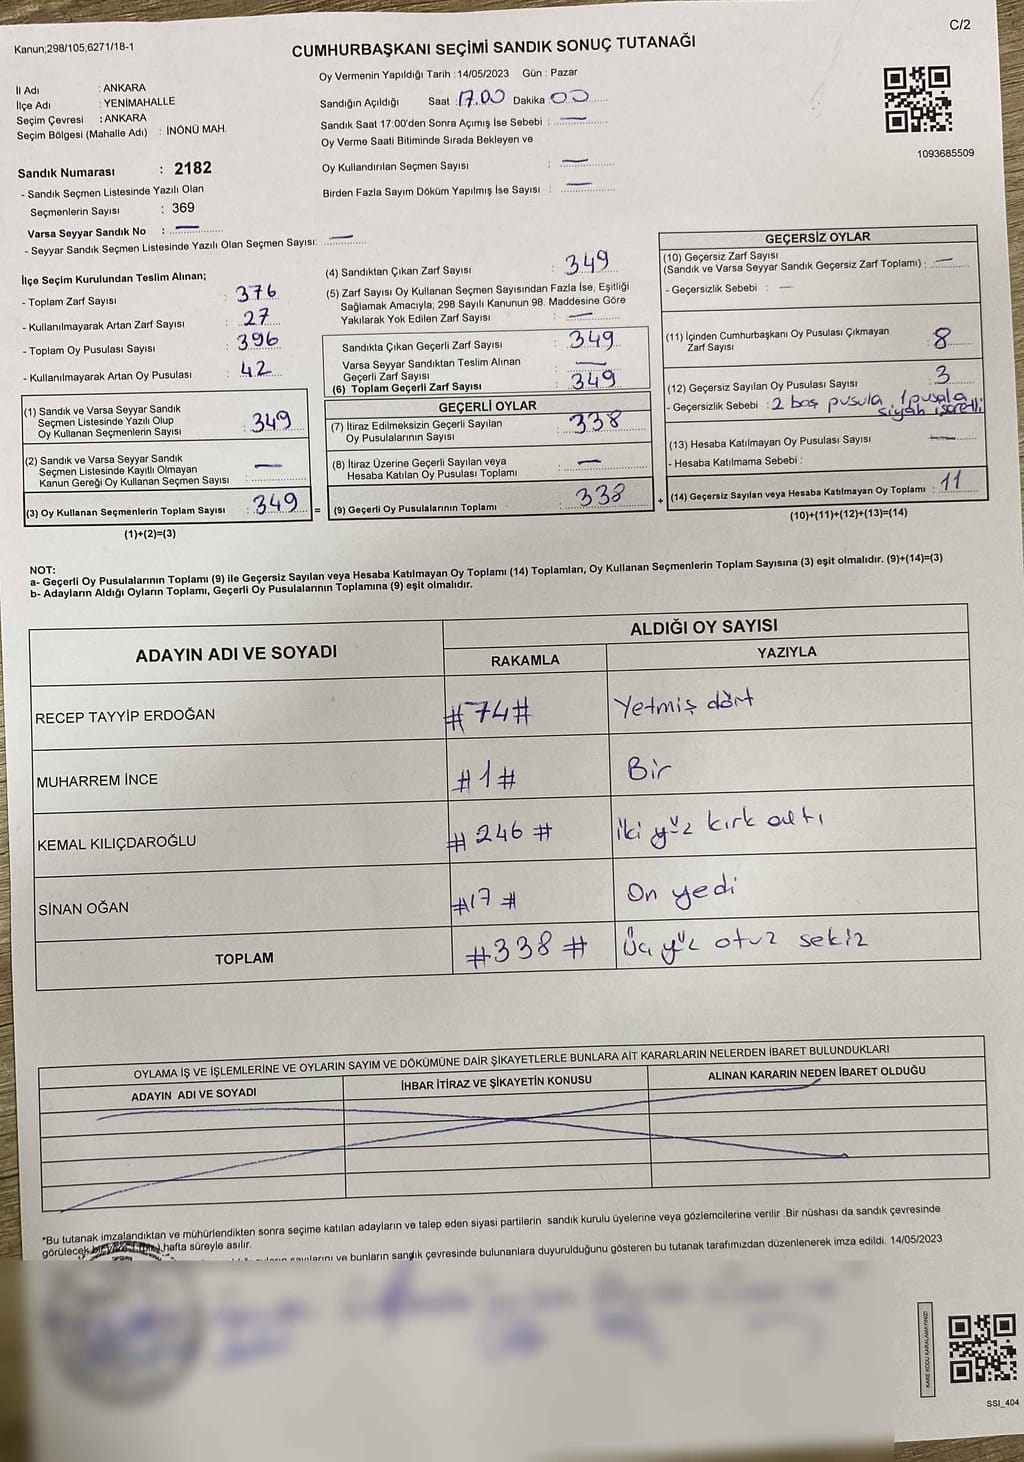 Kanun;298/105,6271/18-1
C/2
CUMHURBAŞKANI SEÇİMİ SANDIK SONUÇ TUTANAĞI
İl Adı : ANKARA
İlçe Adı : YENİMAHALLE
Seçim Çevresi : ANKARA
Seçim Bölgesi (Mahalle Adı) : İNÖNÜ MAH.
Oy Vermenin Yapıldığı Tarih : 14/05/2023 Gün : Pazar
Sandığın Açıldığı Saat : 17.00 Dakika : 00
Sandık Saat 17:00'den Sonra Açımış İse Sebebi : —
Oy Verme Saati Bitiminde Sırada Bekleyen ve
Oy Kullandırılan Seçmen Sayısı : —
Birden Fazla Sayım Döküm Yapılmış İse Sayısı : —
1093685509
Sandık Numarası : 2182
- Sandık Seçmen Listesinde Yazılı Olan
Seçmenlerin Sayısı : 369
Varsa Seyyar Sandık No : —
- Seyyar Sandık Seçmen Listesinde Yazılı Olan Seçmen Sayısı: —
İlçe Seçim Kurulundan Teslim Alınan;
- Toplam Zarf Sayısı : 376
- Kullanılmayarak Artan Zarf Sayısı : 27
- Toplam Oy Pusulası Sayısı : 396
- Kullanılmayarak Artan Oy Pusulası : 42
(1) Sandık ve Varsa Seyyar Sandık
Seçmen Listesinde Yazılı Olup
Oy Kullanan Seçmenlerin Sayısı : 349
(2) Sandık ve Varsa Seyyar Sandık
Seçmen Listesinde Kayıtlı Olmayan
Kanun Gereği Oy Kullanan Seçmen Sayısı : —
(3) Oy Kullanan Seçmenlerin Toplam Sayısı : 349 =
(1)+(2)=(3)
(4) Sandıktan Çıkan Zarf Sayısı : 349
(5) Zarf Sayısı Oy Kullanan Seçmen Sayısından Fazla İse, Eşitliği
Sağlamak Amacıyla; 298 Sayılı Kanunun 98. Maddesine Göre
Yakılarak Yok Edilen Zarf Sayısı : —
Sandıkta Çıkan Geçerli Zarf Sayısı : 349
Varsa Seyyar Sandıktan Teslim Alınan
Geçerli Zarf Sayısı : —
(6) Toplam Geçerli Zarf Sayısı : 349
GEÇERLİ OYLAR
(7) İtiraz Edilmeksizin Geçerli Sayılan
Oy Pusulalarının Sayısı : 338
(8) İtiraz Üzerine Geçerli Sayılan veya
Hesaba Katılan Oy Pusulası Toplamı : —
(9) Geçerli Oy Pusulalarının Toplamı : 338 +
GEÇERSİZ OYLAR
(10) Geçersiz Zarf Sayısı
(Sandık ve Varsa Seyyar Sandık Geçersiz Zarf Toplamı) : —
- Geçersizlik Sebebi : —
(11) İçinden Cumhurbaşkanı Oy Pusulası Çıkmayan
Zarf Sayısı : 8
(12) Geçersiz Sayılan Oy Pusulası Sayısı : 3
- Geçersizlik Sebebi : 2 boş pusula, 1 pusala
siyah işaretli
(13) Hesaba Katılmayan Oy Pusulası Sayısı : —
- Hesaba Katılmama Sebebi :
(14) Geçersiz Sayılan veya Hesaba Katılmayan Oy Toplamı : 11
(10)+(11)+(12)+(13)=(14)
NOT:
a- Geçerli Oy Pusulalarının Toplamı (9) ile Geçersiz Sayılan veya Hesaba Katılmayan Oy Toplamı (14) Toplamları, Oy Kullanan Seçmenlerin Toplam Sayısına (3) eşit olmalıdır. (9)+(14)=(3)
b- Adayların Aldığı Oyların Toplamı, Geçerli Oy Pusulalarının Toplamına (9) eşit olmalıdır.
ADAYIN ADI VE SOYADI
ALDIĞI OY SAYISI
RAKAMLA YAZIYLA
RECEP TAYYİP ERDOĞAN #74# Yetmiş dört
MUHARREM İNCE #1# Bir
KEMAL KILIÇDAROĞLU #246# iki yüz kırk altı
SİNAN OĞAN #17# On yedi
TOPLAM #338# Üç yüz otuz sekiz
OYLAMA İŞ VE İŞLEMLERİNE VE OYLARIN SAYIM VE DÖKÜMÜNE DAİR ŞİKAYETLERLE BUNLARA AİT KARARLARIN NELERDEN İBARET BULUNDUKLARI
ADAYIN ADI VE SOYADI İHBAR İTİRAZ VE ŞİKAYETİN KONUSU ALINAN KARARIN NEDEN İBARET OLDUĞU
*Bu tutanak imzalandıktan ve mühürlendikten sonra seçime katılan adayların ve talep eden siyasi partilerin sandık kurulu üyelerine veya gözlemcilerine verilir .Bir nüshası da sandık çevresinde
görülecek bir hafta süreyle asılır.
sayılarını ve bunların sandık çevresinde bulunanlara duyurulduğunu gösteren bu tutanak tarafımızdan düzenlenerek imza edildi. 14/05/2023
KARE KODU KARALAMAYINIZ!
SSI_404